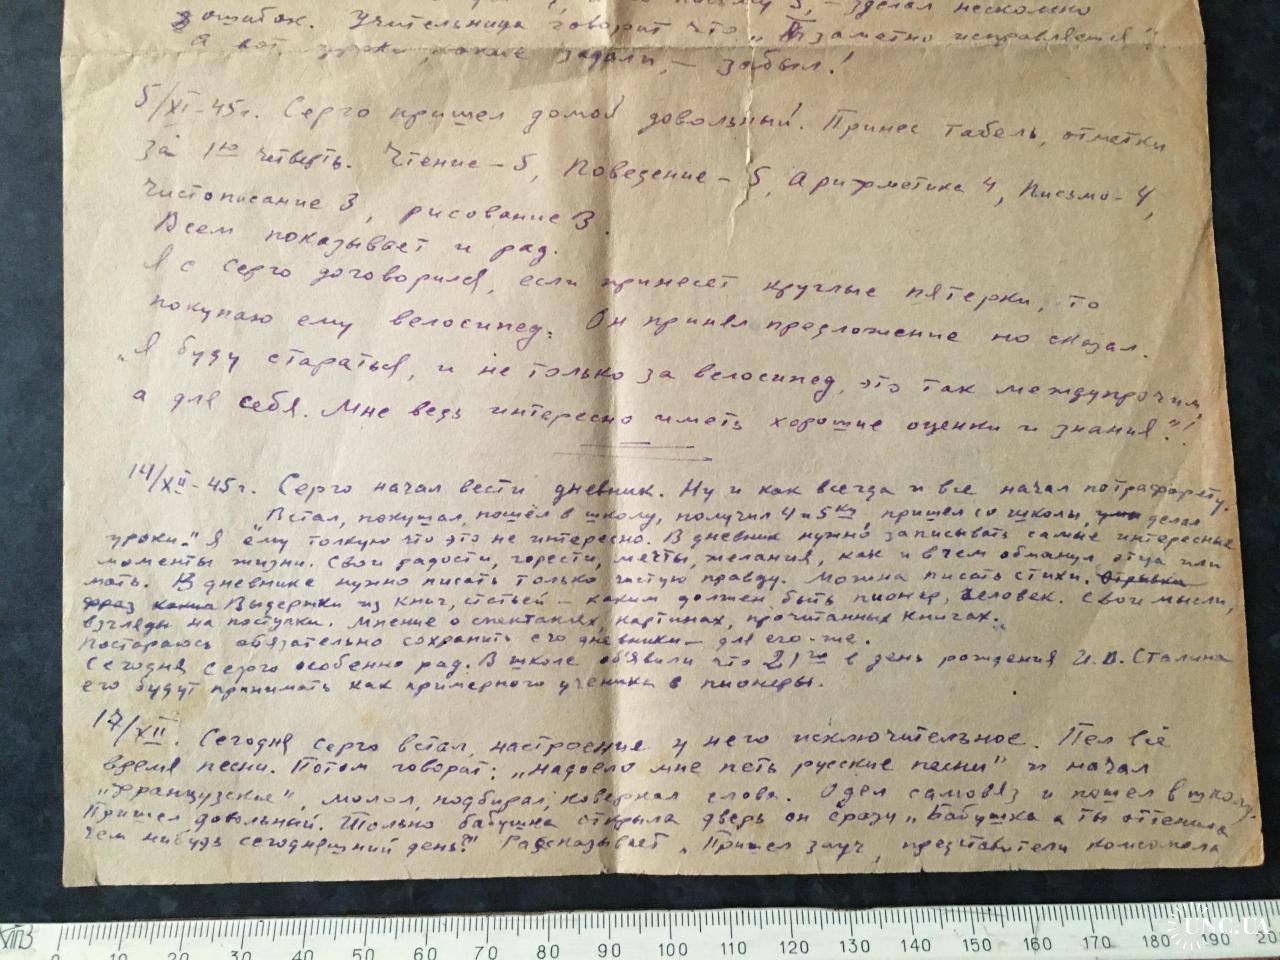 письму 3, - зделал несколько
ошибок. Учительница говорит что "заметно исправляется".
А вот уроки какие задали, - забыл!
5/XI-45г. Серго пришел домой довольный. Принес табель, отметки
за 1ю четверть. Чтение - 5, Поведение - 5, Арифметика 4, Письмо - 4,
Чистописание 3, рисование 3.
Всем показывает и рад.
Я с Серго договорился, если принесет круглые пятерки, то
покупаю ему велосипед. Он принял предложение но сказал.
"Я буду стараться, и не только за велосипед, это так междупрочим,
а для себя. Мне ведь интересно иметь хорошие оценки и знания"!
14/XII-45г. Серго начал вести дневник. Ну и как всегда и все начал по трафарету.
"Встал, покушал, пошёл в школу, получил 4 и 5ку, пришел со школы, делал
уроки." Я ему толкую что это не интересно. В дневник нужно записывать самые интересные
моменты жизни. Свои радости, горести, мечты, желания, как и в чем обманул отца или
мать. В дневнике нужно писать только чистую правду. Можна писать стихи. Отрывки
фраз Выдержки из книг, статьей - каким должен быть пионер, человек. Свои мысли,
взгляды на поступки. Мнение о спектаклях, картинах, прочитанных книгах.
Постараюсь обязательно сохранить его дневники - для его-же.
Сегодня Серго особенно рад. В школе объявили что 21го в день рождения И.В. Сталина
его будут принимать как примерного ученика в пионеры.
17/XII. Сегодня Серго встал, настроения у него исключительное. Пел всё
время песни. Потом говорит: "Надоело мне петь русские песни" и начал
"французские", молол, подбирал, коверкал слова. Одел самовяз и пошел в школу.
Пришел довольный. Только бабушка открыла дверь он сразу "Бабушка а ты отгенила
чем нибудь сегодняшний день?" Рассказывает "Пришел зауч, представители комсомола
0 10 20 30 40 50 60 70 80 90 100 110 120 130 140 150 160 170 180 190 20
UNC.UA